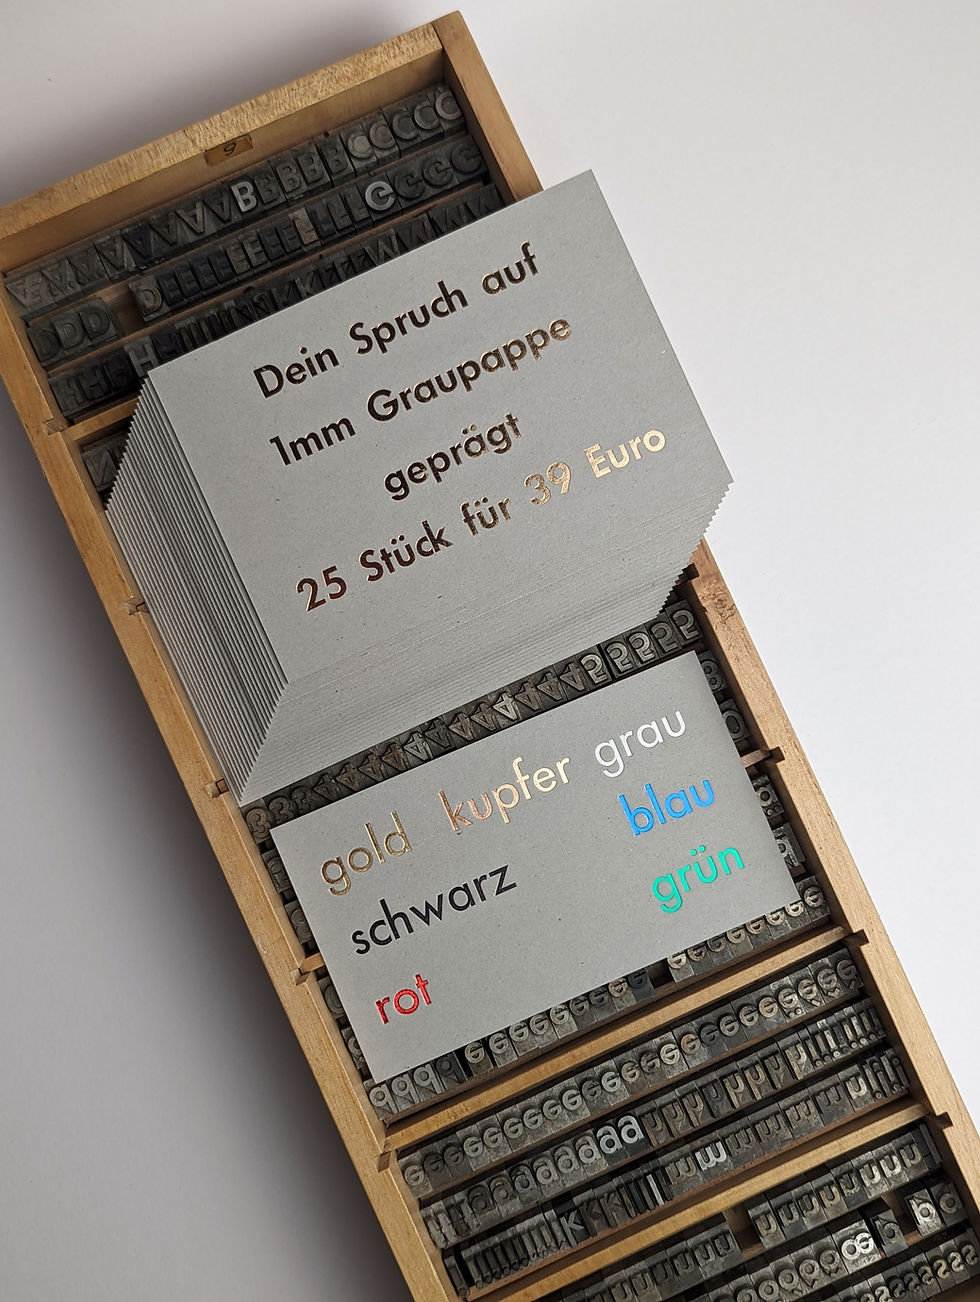 Dein Spruch auf
1mm Graupappe
geprägt
25 Stück für 39 Euro
gold kupfer grau
schwarz blau
rot grün